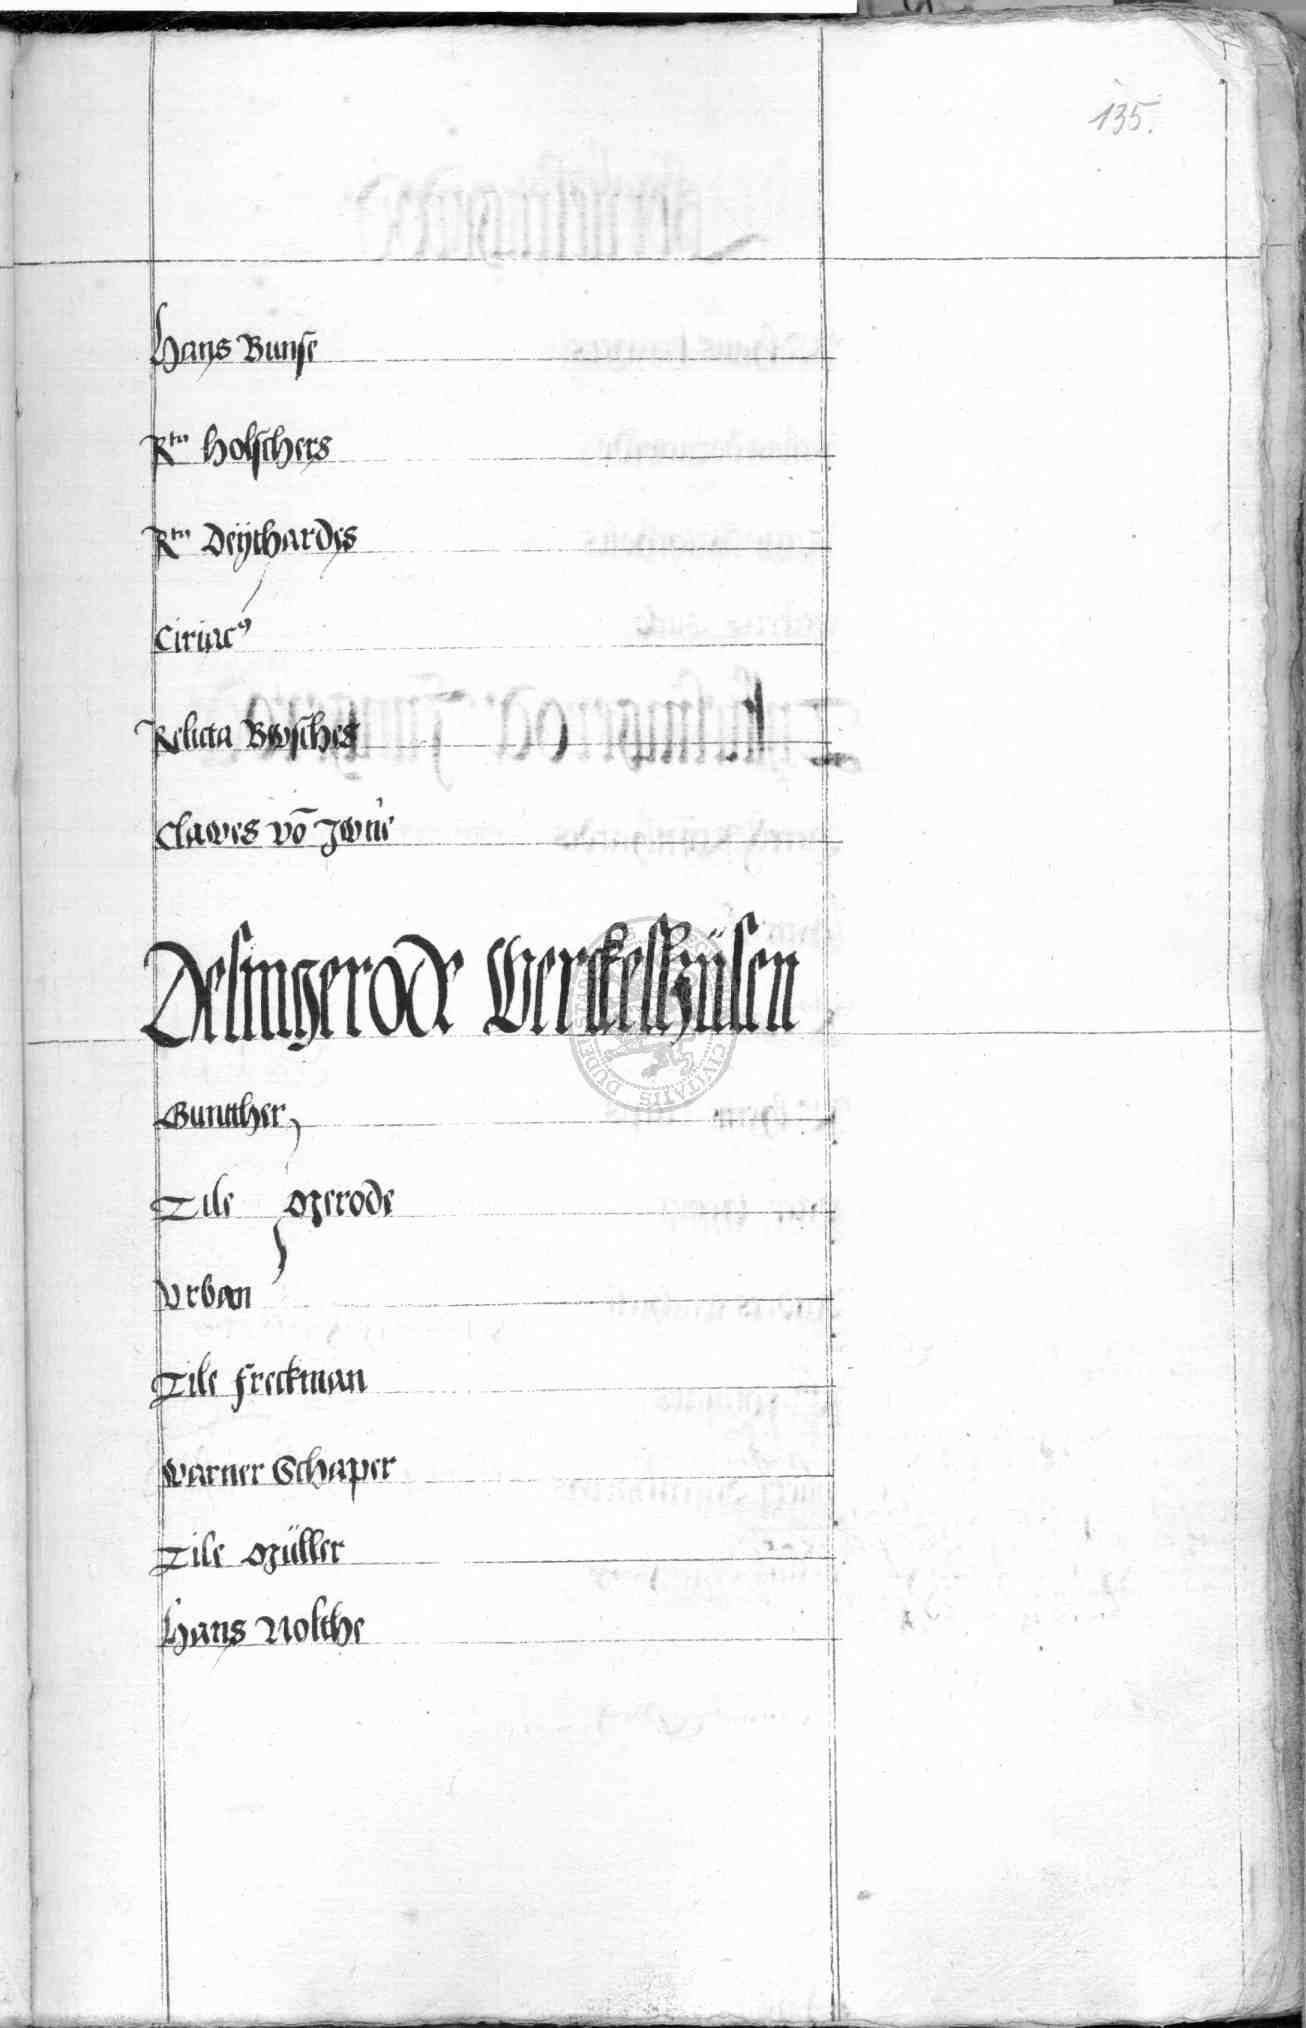 135.
Hans Bunse
Rta Holschers
Rta Deÿthardes
Ciriacꝰ
Relicta Bosches
Clawes vō
Desingerode Werckeßhüsen
Guntther
Tile Mgerode
Vrban
Tile Freckman
Warner Schaper
Tile Müller
Hans Nolthe